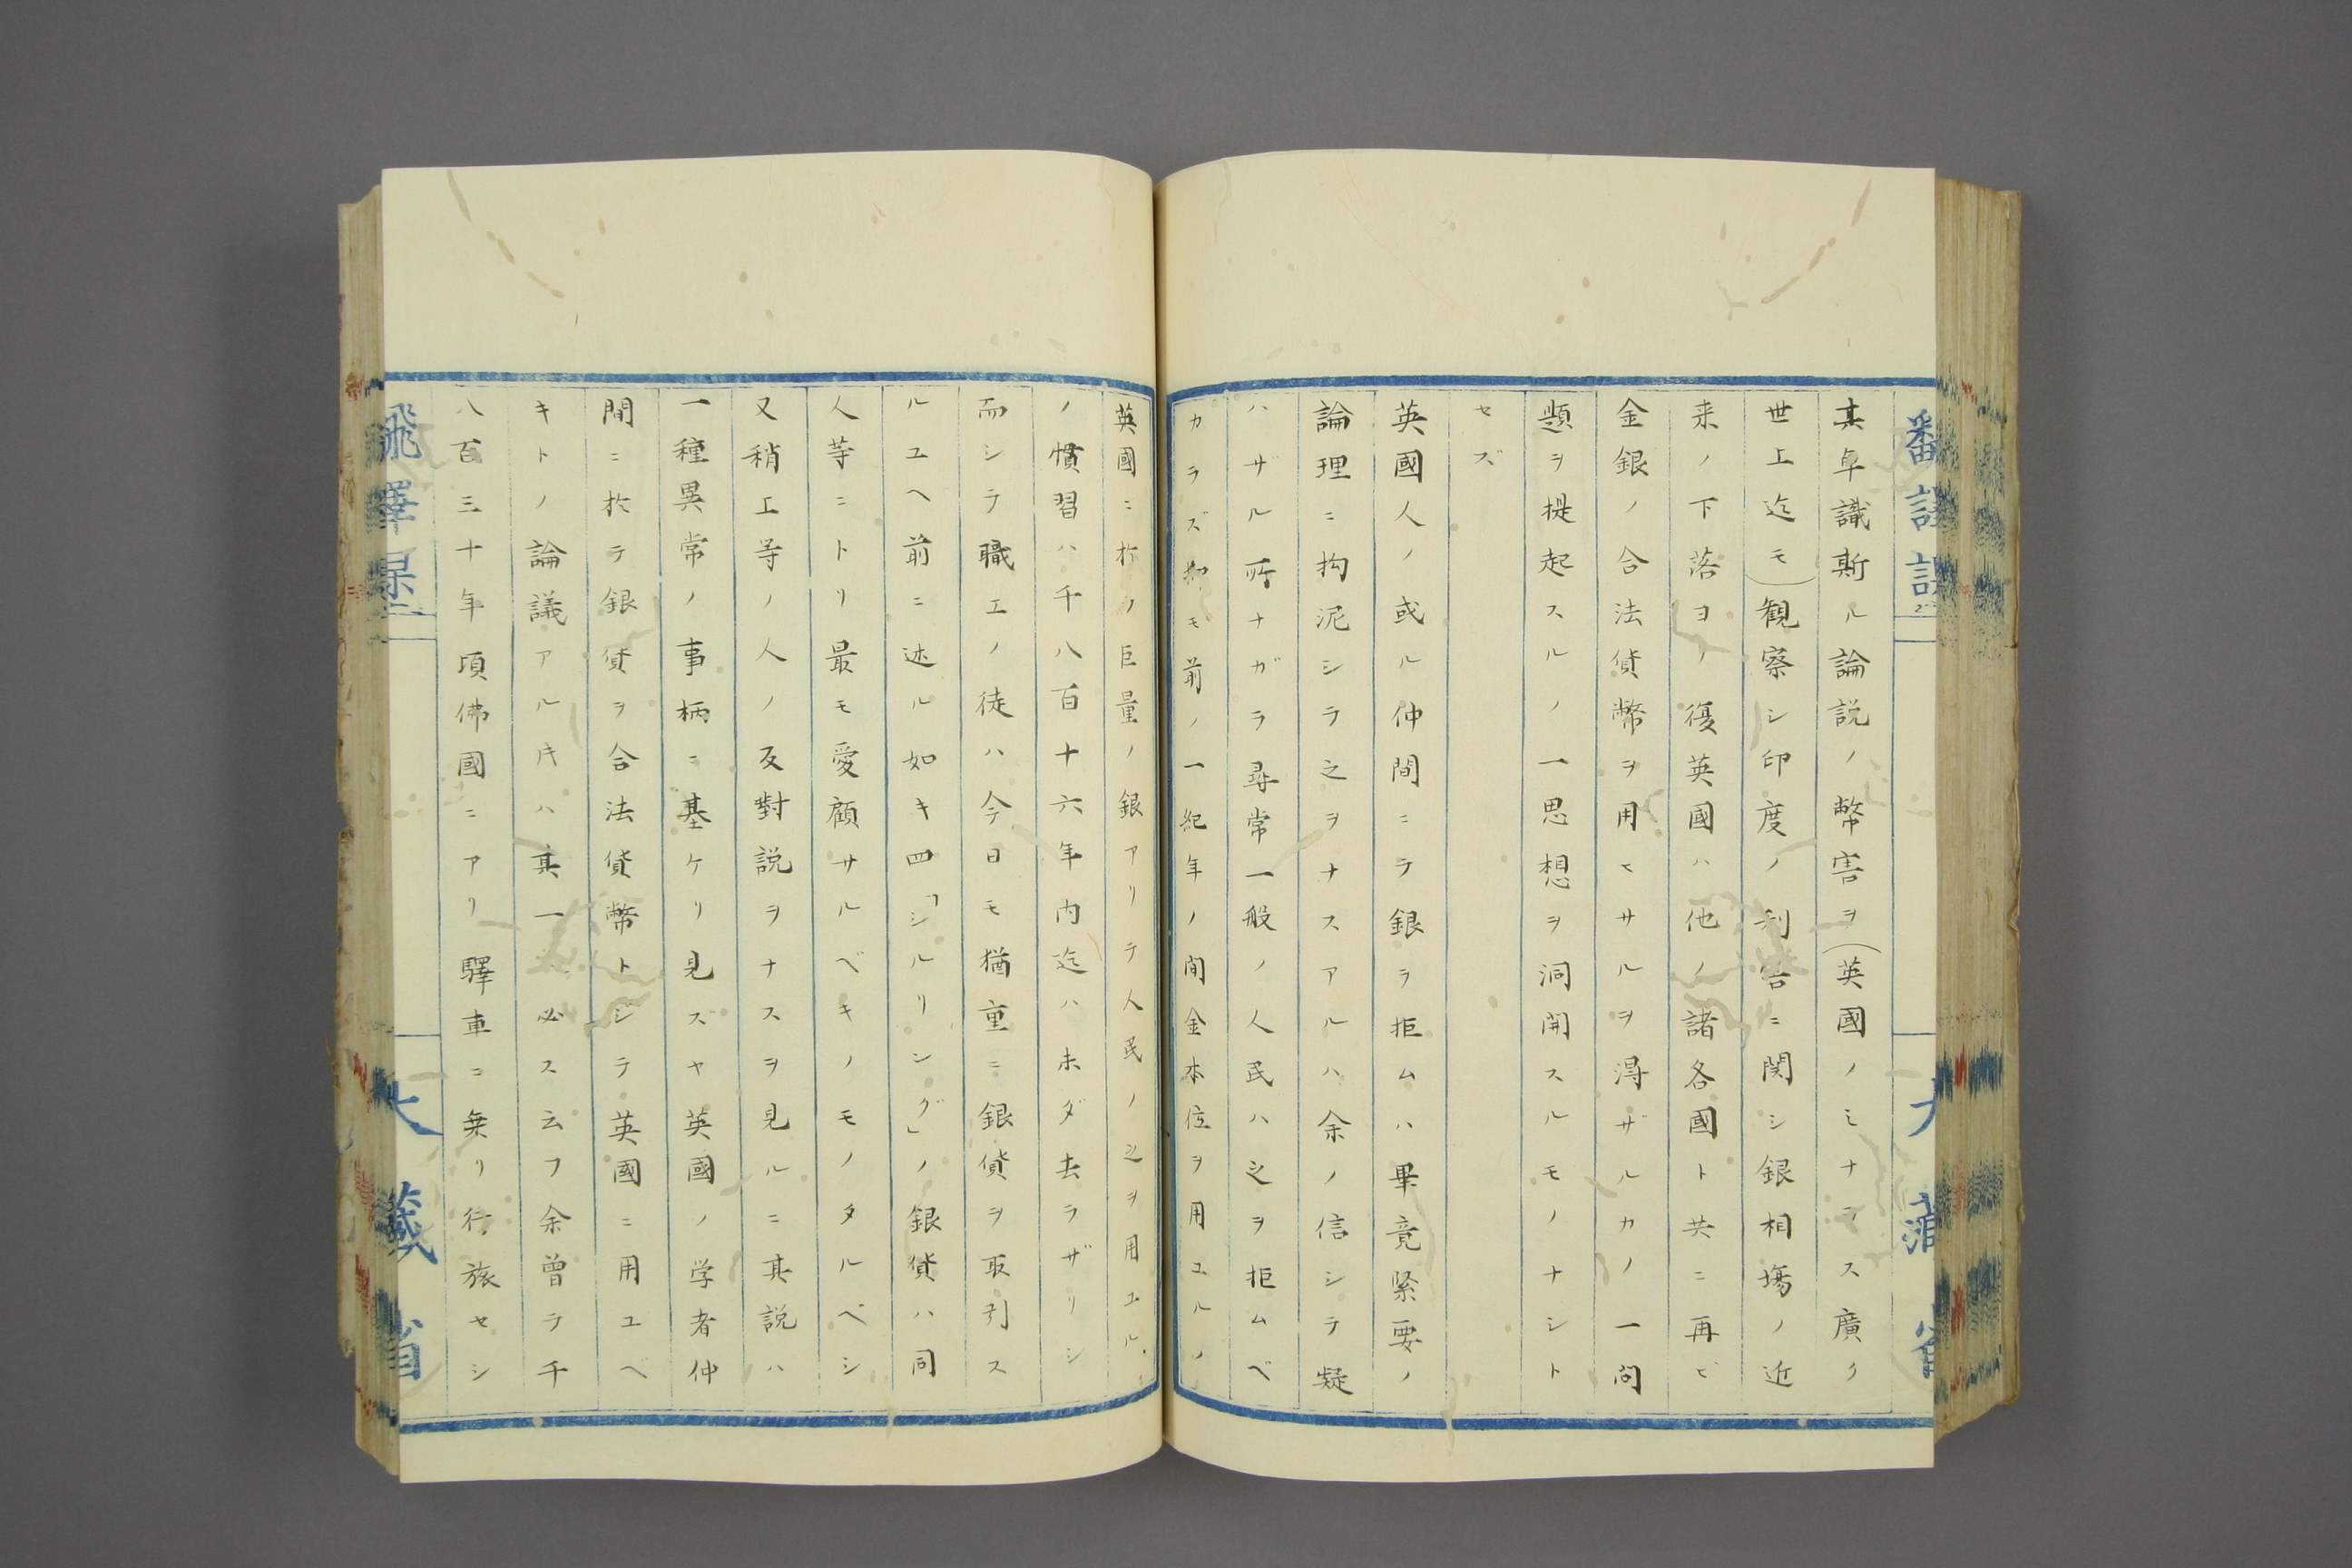 其卓識斯ル論説ノ幣害ヲ(英國ノミナラス廣ク
世上迄モ)観察シ印度ノ利害ニ関シ銀相塲ノ近
来ノ下落ヨノ復英國ハ他ノ諸各國ト共ニ再ビ
金銀ノ合法貨幣ヲ用ヒサルヲ得ザルカノ一問
題ヲ提起スルノ一思想ヲ洞開スルモノナシト
セズ
英國人ノ或ル仲間ニテ銀ヲ拒ムハ畢竟緊要ノ
論理ニ拘泥シテ之ヲナスアルハ余ノ信シテ疑
ハザル所ナガラ尋常一般ノ人民ハ之ヲ拒ムベ
カラズ抑モ前ノ一紀年ノ間金本位ヲ用ユルノ
英國ニ於ノ巨量ノ銀アリテ人民ノ之ヲ用ユル
ノ慣習ハ千八百十六年内迄ハ未ダ去ラザリシ
而シテ職工ノ徒ハ今日モ猶重ニ銀貨ヲ取引ス
ルユヘ前ニ述ル如キ四「シルリング」ノ銀貨ハ同
人等ニトリ最モ愛顧サルベキノモノタルベシ
又稍上等ノ人ノ反對説ヲナスヲ見ルニ其説ハ
一種異常ノ事柄ニ基ケリ見ズヤ英國ノ学者仲
間ニ於テ銀貨ヲ合法貨幣トシテ英國ニ用ユベ
キトノ論議アル𪜈ハ其一ハ必ス云フ余曾テ千
八百三十年頃佛國ニアリ驛車ニ乗リ行旅セシ
大藏省